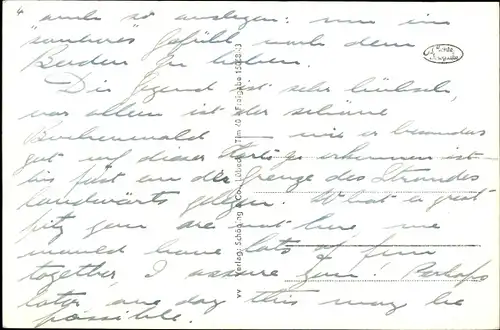 4
auch so anlegen: nur ein
"sauberes" Gefühl nach dem
Baden zu haben.
Die Gegend ist sehr hübsch,
vor allem ist der schöne
Buchenwald — wie er besonders
gut auf dieser Karte zu erkennen ist –
bis fast an die Grenze des Strandes
landwärts gelegen. What a great
pity you are not here, we
would have lots of fun
together, I assure you! Perhaps
later one day this may be
possible.
Verlag: Schöning & Co., Lübeck
Echte